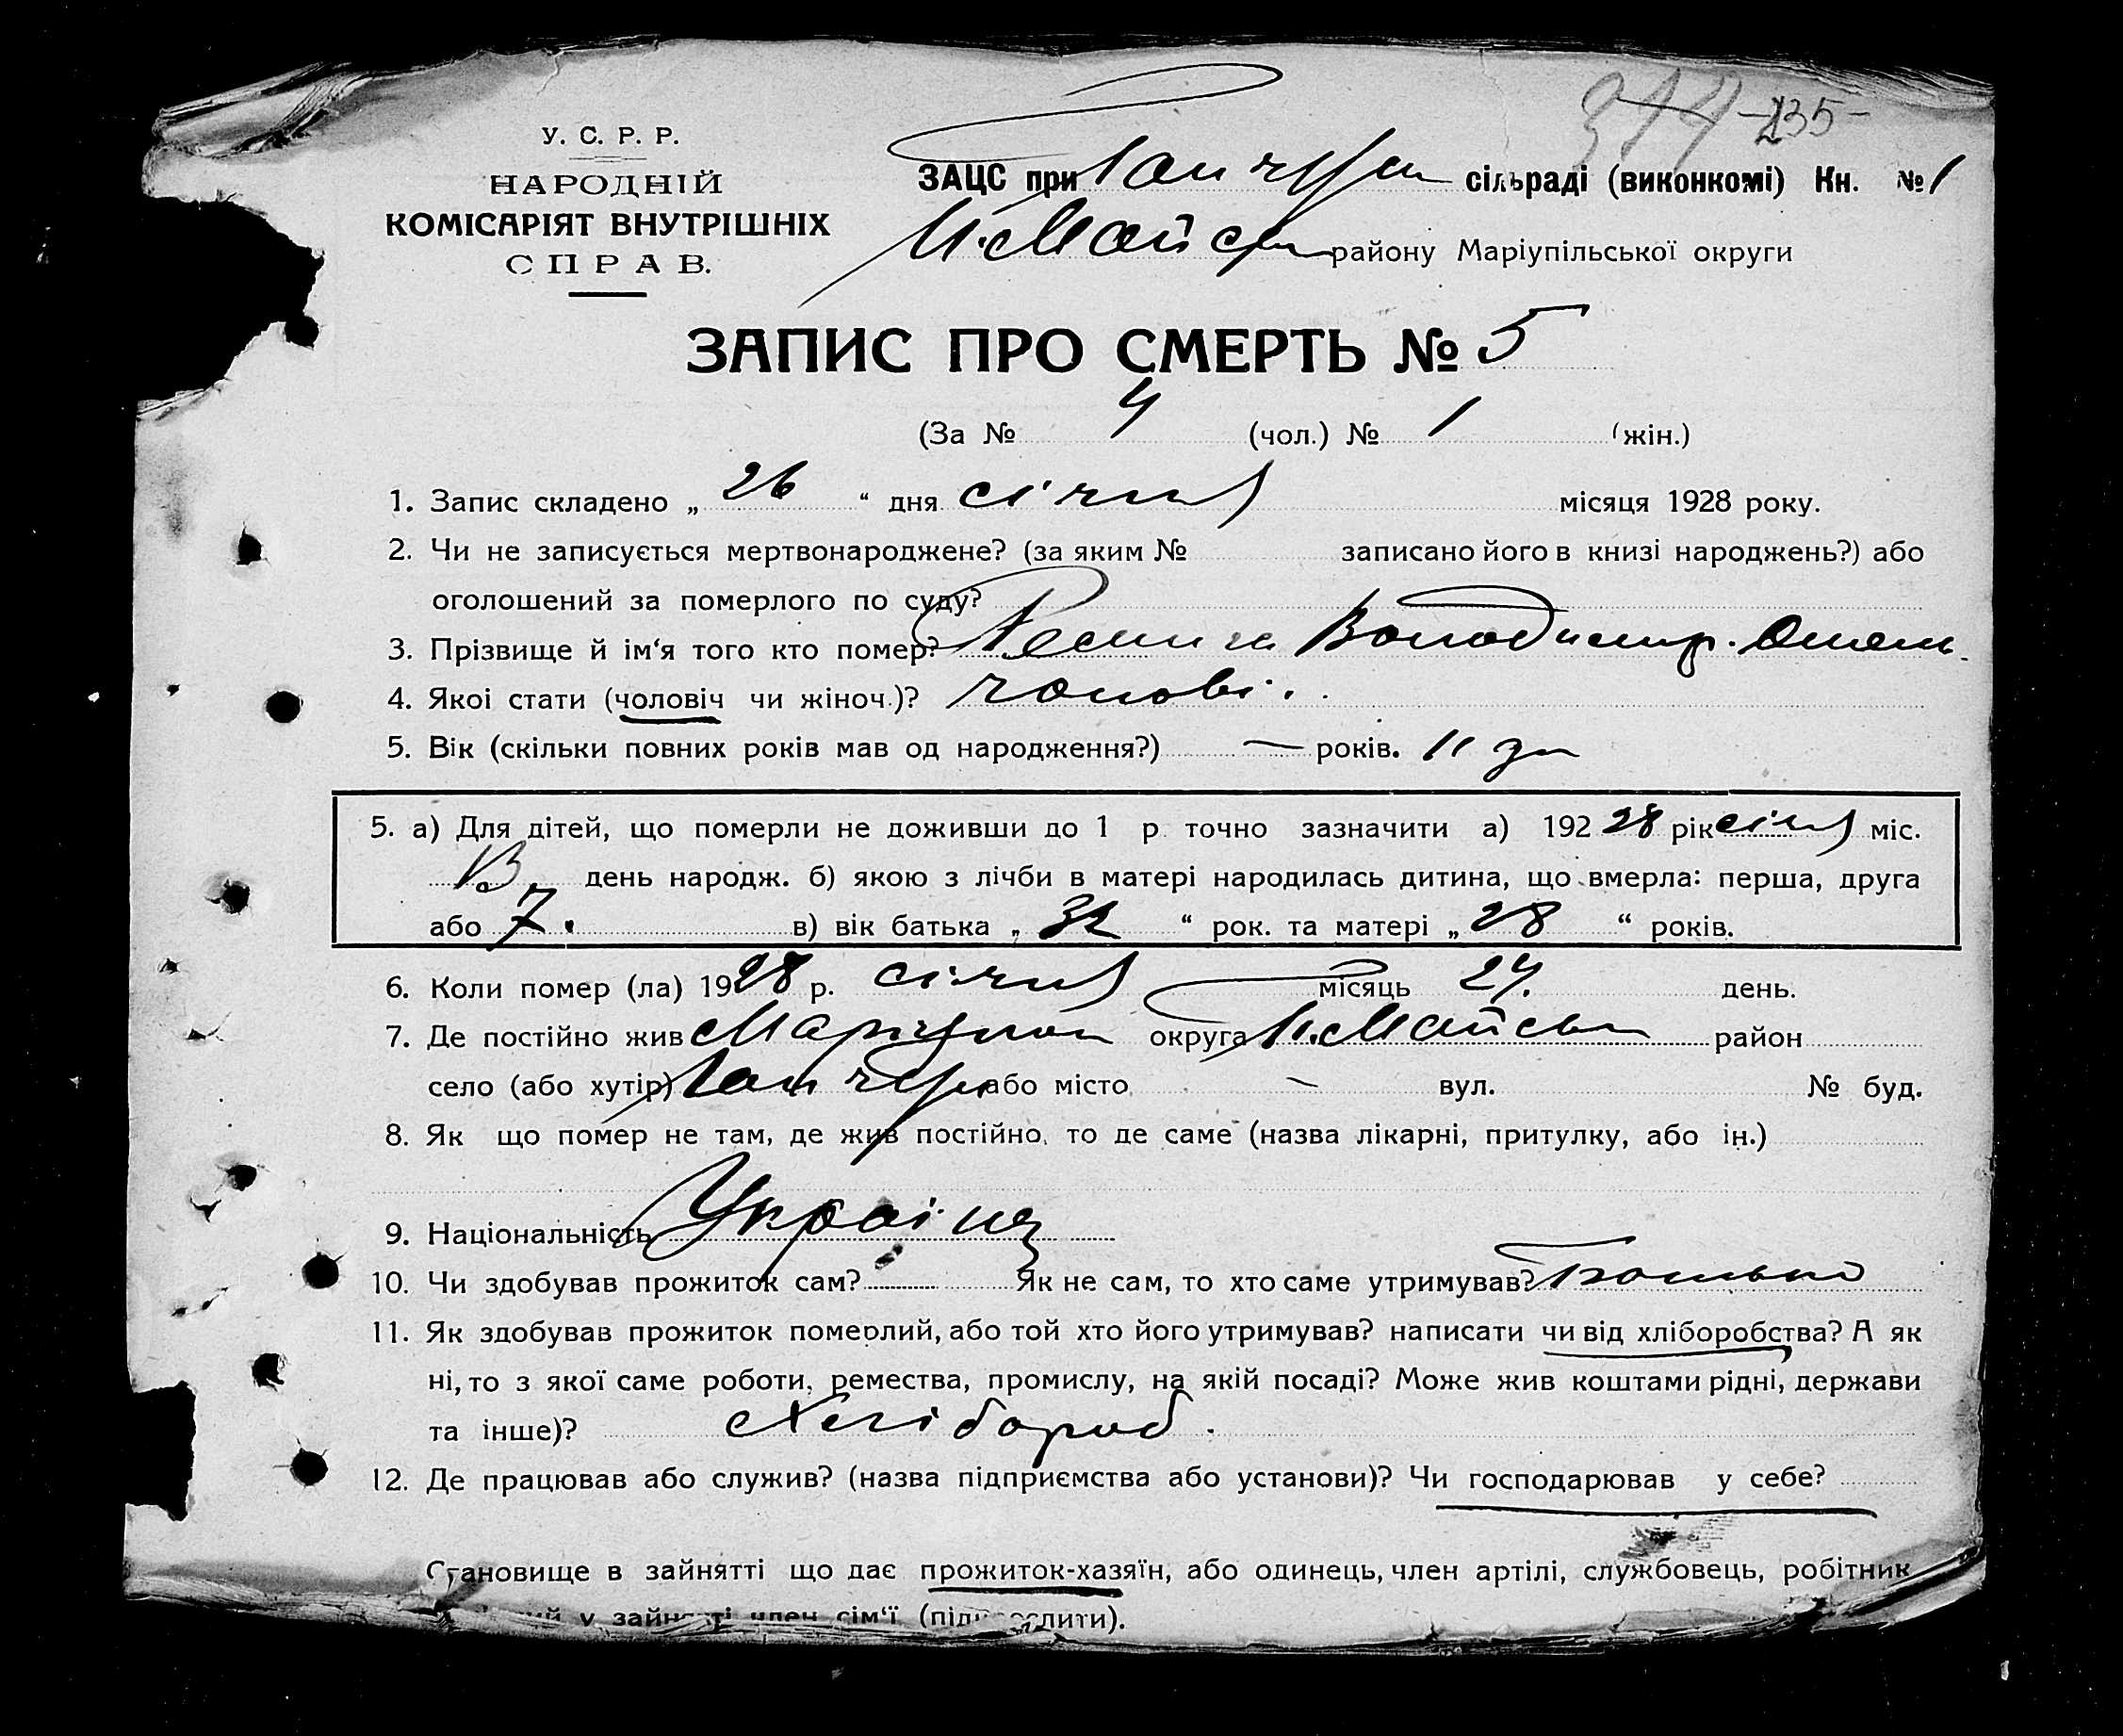 344 -235-
У. С. Р. Р.
НАРОДНІЙ
КОМІСАРІЯТ ВНУТРІШНІХ
СПРАВ.
ЗАЦС при сільраді (виконкомі) Кн. № 1
П. Майськ району Маріупільської округи
ЗАПИС ПРО СМЕРТЬ № 5
(За № 4 (чол.) № 1 (жін.)
1. Запис складено „ 26 “ дня січня місяця 1928 року.
2. Чи не записується мертвонароджене? (за яким № записано його в книзі народжень?) або
оголошений за померлого по суду?
3. Прізвище й ім‘я того кто помер? Володимир. Омель.
4. Якоі стати (чоловіч чи жіноч.)? чолові.
5. Вік (скільки повних років мав од народження?) — років. 11 дн
5. а) Для дітей, що померли не доживши до 1 р. точно зазначити а) 192 28 рік січня міс.
13 день народж. б) якою з лічби в матері народилась дитина, що вмерла: перша, друга
або 7. в) вік батька „ 32 “ рок. та матері „ 28 “ років.
6. Коли помер (ла) 1928 р. січня місяць 24. день.
7. Де постійно жив Маріупол округа П. Майськ район
село (або хутір) або місто — вул. № буд.
8. Як що помер не там, де жив постійно, то де саме (назва лікарні, притулку, або ін.)
9. Національність Україн
10. Чи здобував прожиток сам? Як не сам, то хто саме утримував? Батько
11. Як здобував прожиток померлий, або той хто його утримував? написати чи від хліборобства? А як
ні, то з якої саме роботи, ремества, промислу, на якій посаді? Може жив коштами рідні, держави
та інше)? Хлібороб.
12. Де працював або служив? (назва підприємства або установи)? Чи господарював у себе?
Становище в зайнятті що дає прожиток-хазяїн, або одинець, член артілі, службовець, робітник
у зайнятті член сім‘ї (підкреслити).